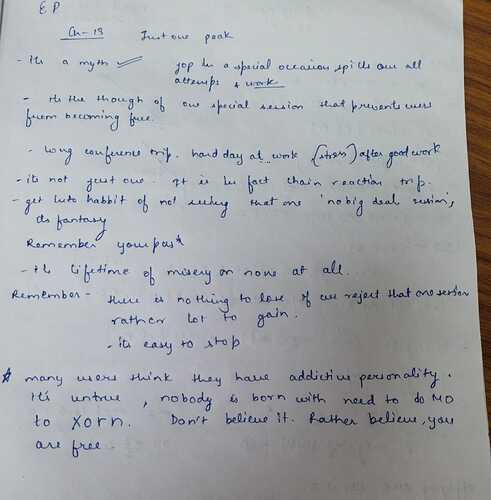 EP
Ch-13 Just one peak
- Its a myth yop in a special occasion spills our all
attemps & work
- Its the though of one special session that prevents users
from becoming free.
- long conference trip. hard day at work (stress) after good work
- its not just one. It is in fact chain reaction trip.
- get into habbit of not seeing that one 'no big deal session',
its fantasy
Remember your past
- Its lifetime of misery or none at all.
Remember - there is nothing to lose if we reject that one session
rather lot to gain.
- its easy to stop
* many users think they have addictive personality.
It's untrue, nobody is born with need to do MO
to Xorn. Don't believe it. Rather believe, you
are free.